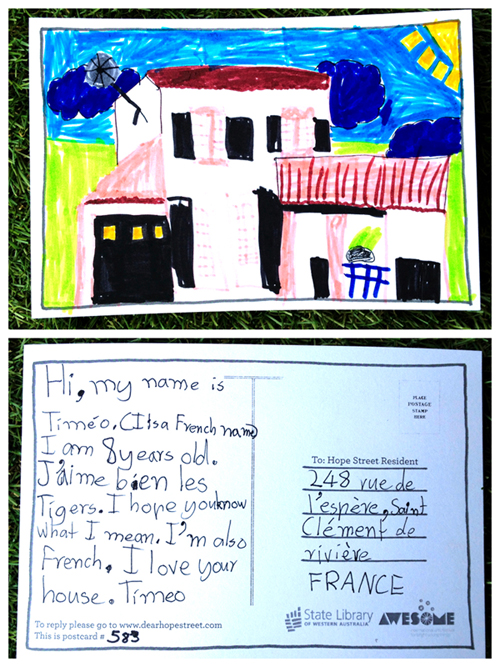 Hi, my name is
Timéo. (Itsa French name)
I am 8 years old.
J'aime bien les
Tigers. I hope youknow
what I mean. I'm also
French. I love your
house. Timeo
To reply please go to www.dearhopestreet.com
This is postcard # 583
PLACE
POSTAGE
STAMP
HERE
To: Hope Street Resident
248 rue de
l'espère, Saint
Clément de
rivière
FRANCE
State Library
OF WESTERN AUSTRALIA
AWESOME